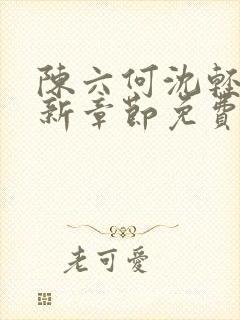 陳六何沈輕
新章節免費
老可愛